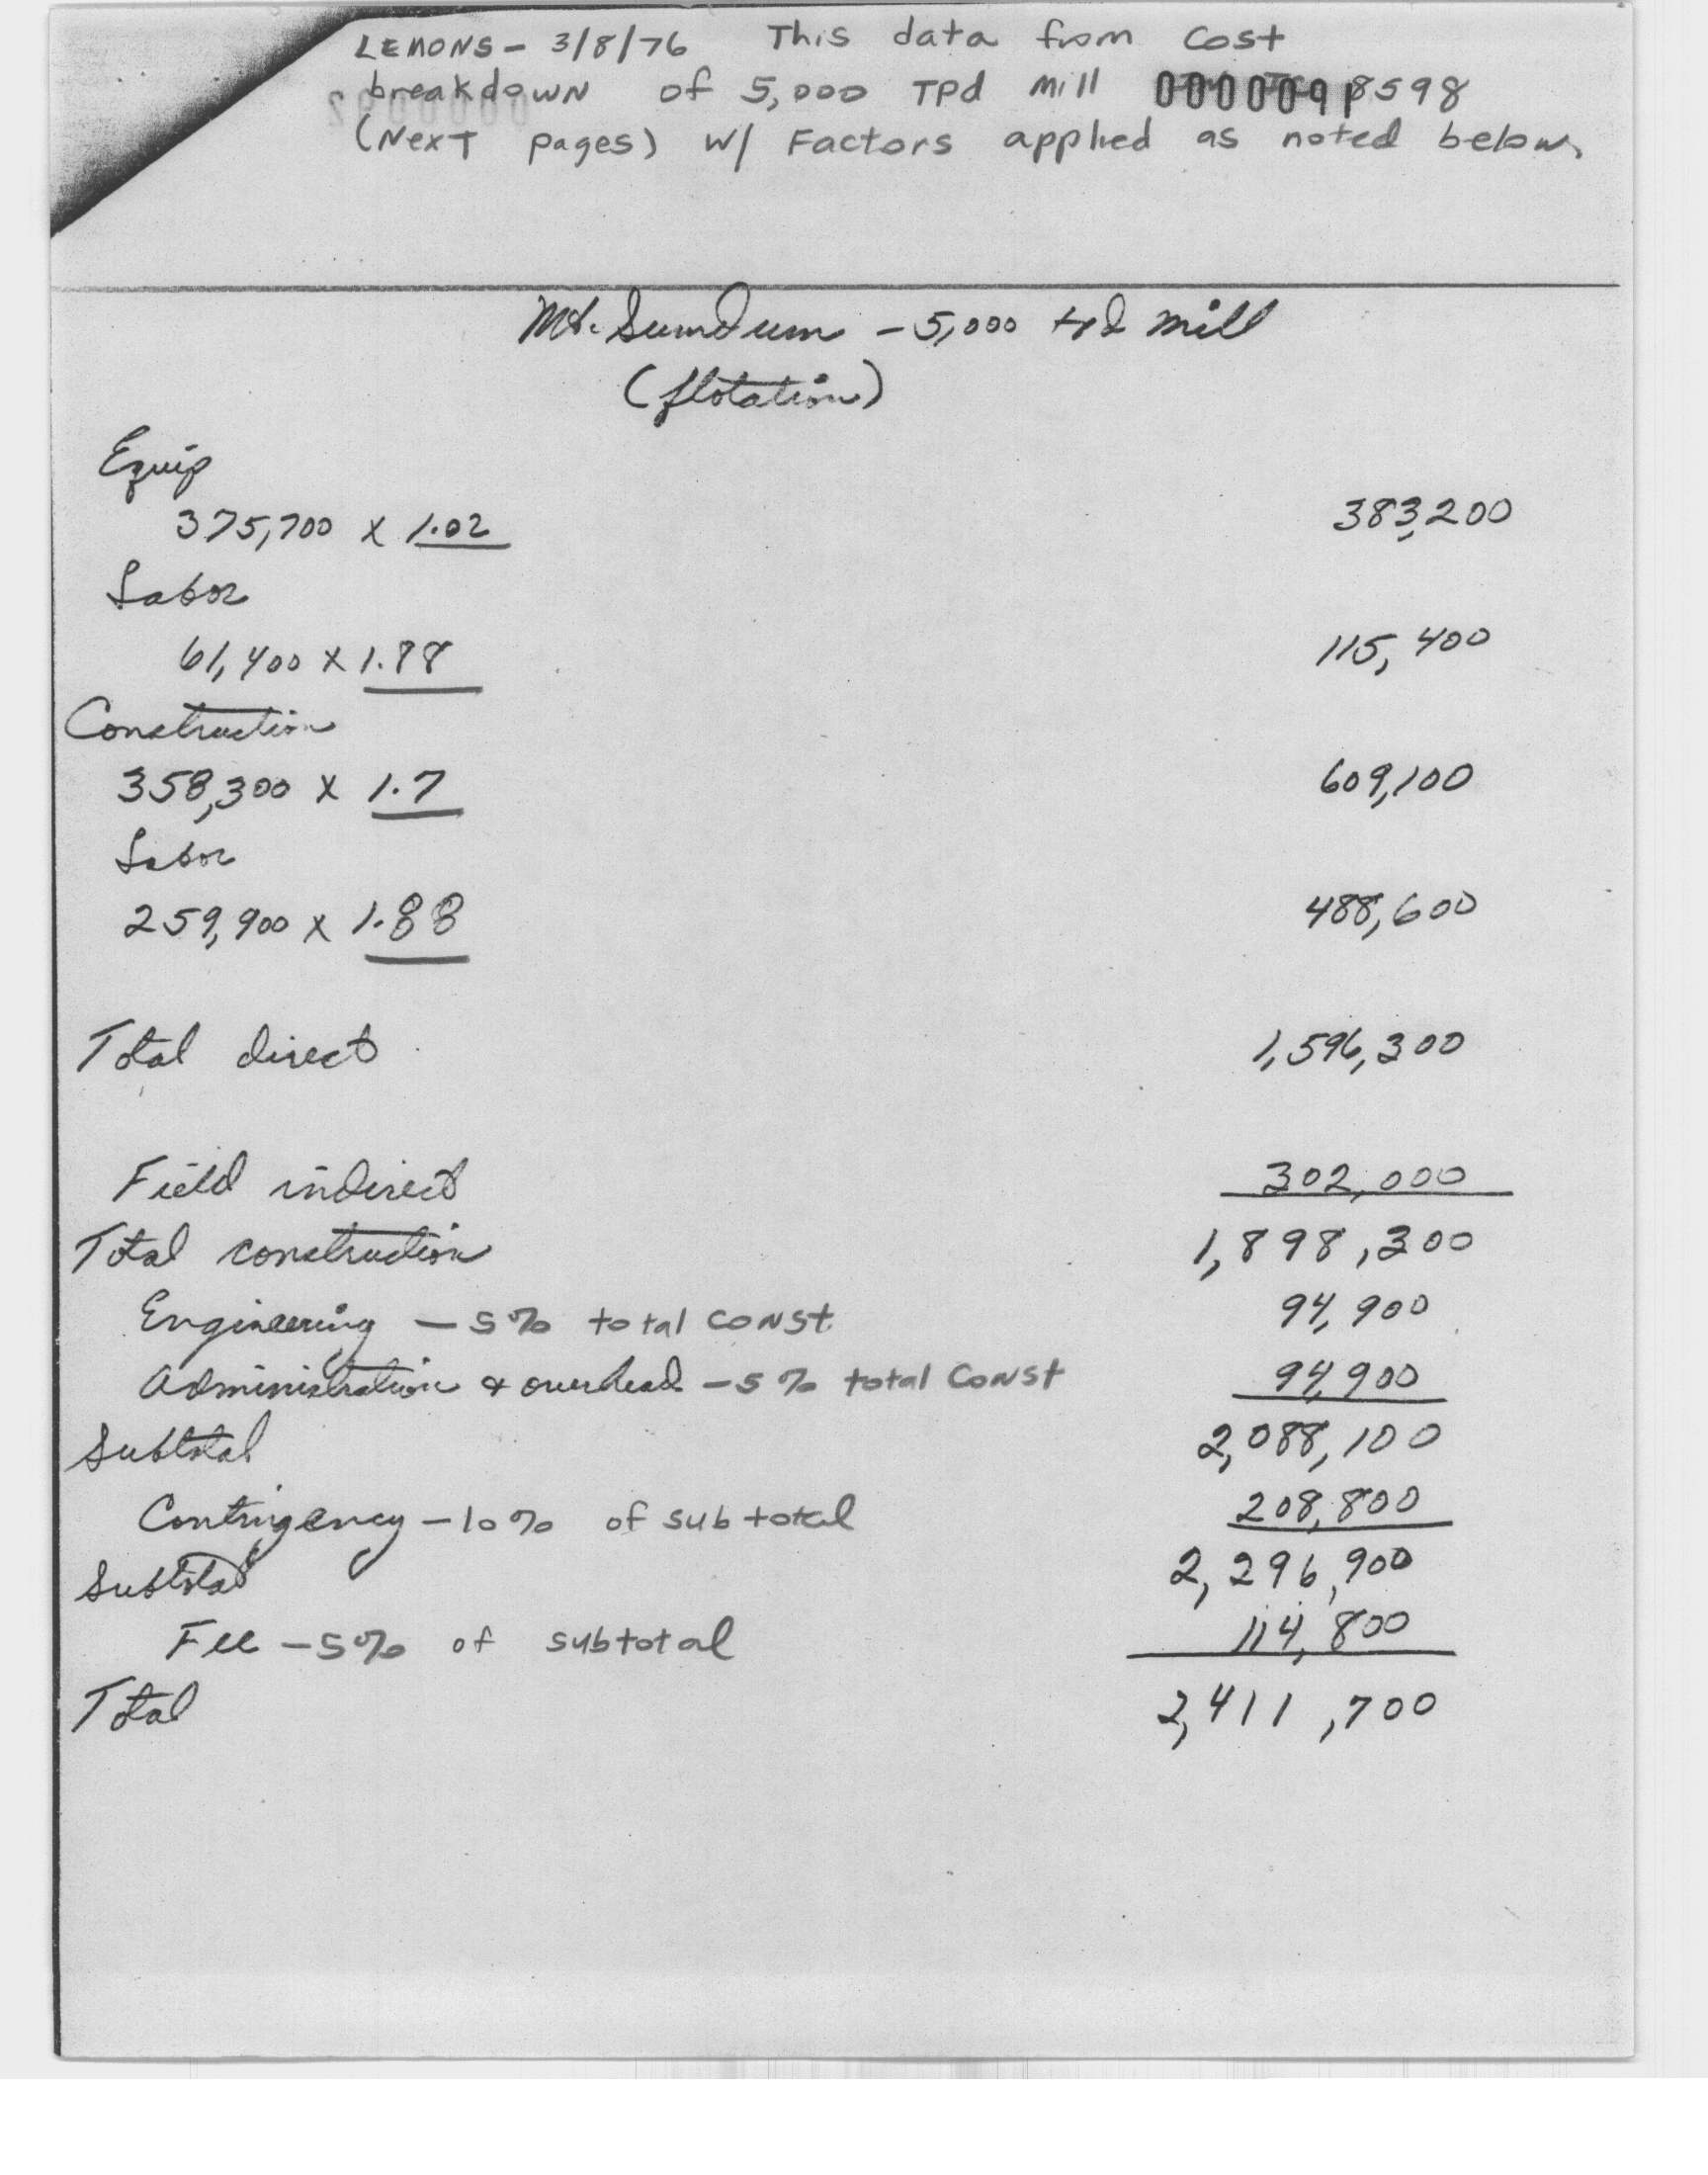 LEMONS - 3/8/76 This data from Cost
breakdown of 5,000 TPd Mill 0000091 8598
(Next pages) w/ Factors applied as noted below,
Mt. Sumdum - 5,000 tpd mill
(flotation)
Equip
375,700 x 1.02 383,200
Labor
61,400 x 1.88 115,400
Construction
358,300 x 1.7 609,100
Labor
259,900 x 1.88 488,600
Total direct 1,596,300
Field indirect 302,000
Total construction 1,898,300
Engineering - 5% total const 94,900
Administration & overhead - 5% total Const 94,900
Subtotal 2,088,100
Contingency - 10% of subtotal 208,800
Subtotal 2,296,900
Fee - 5% of subtotal 114,800
Total 2,411,700